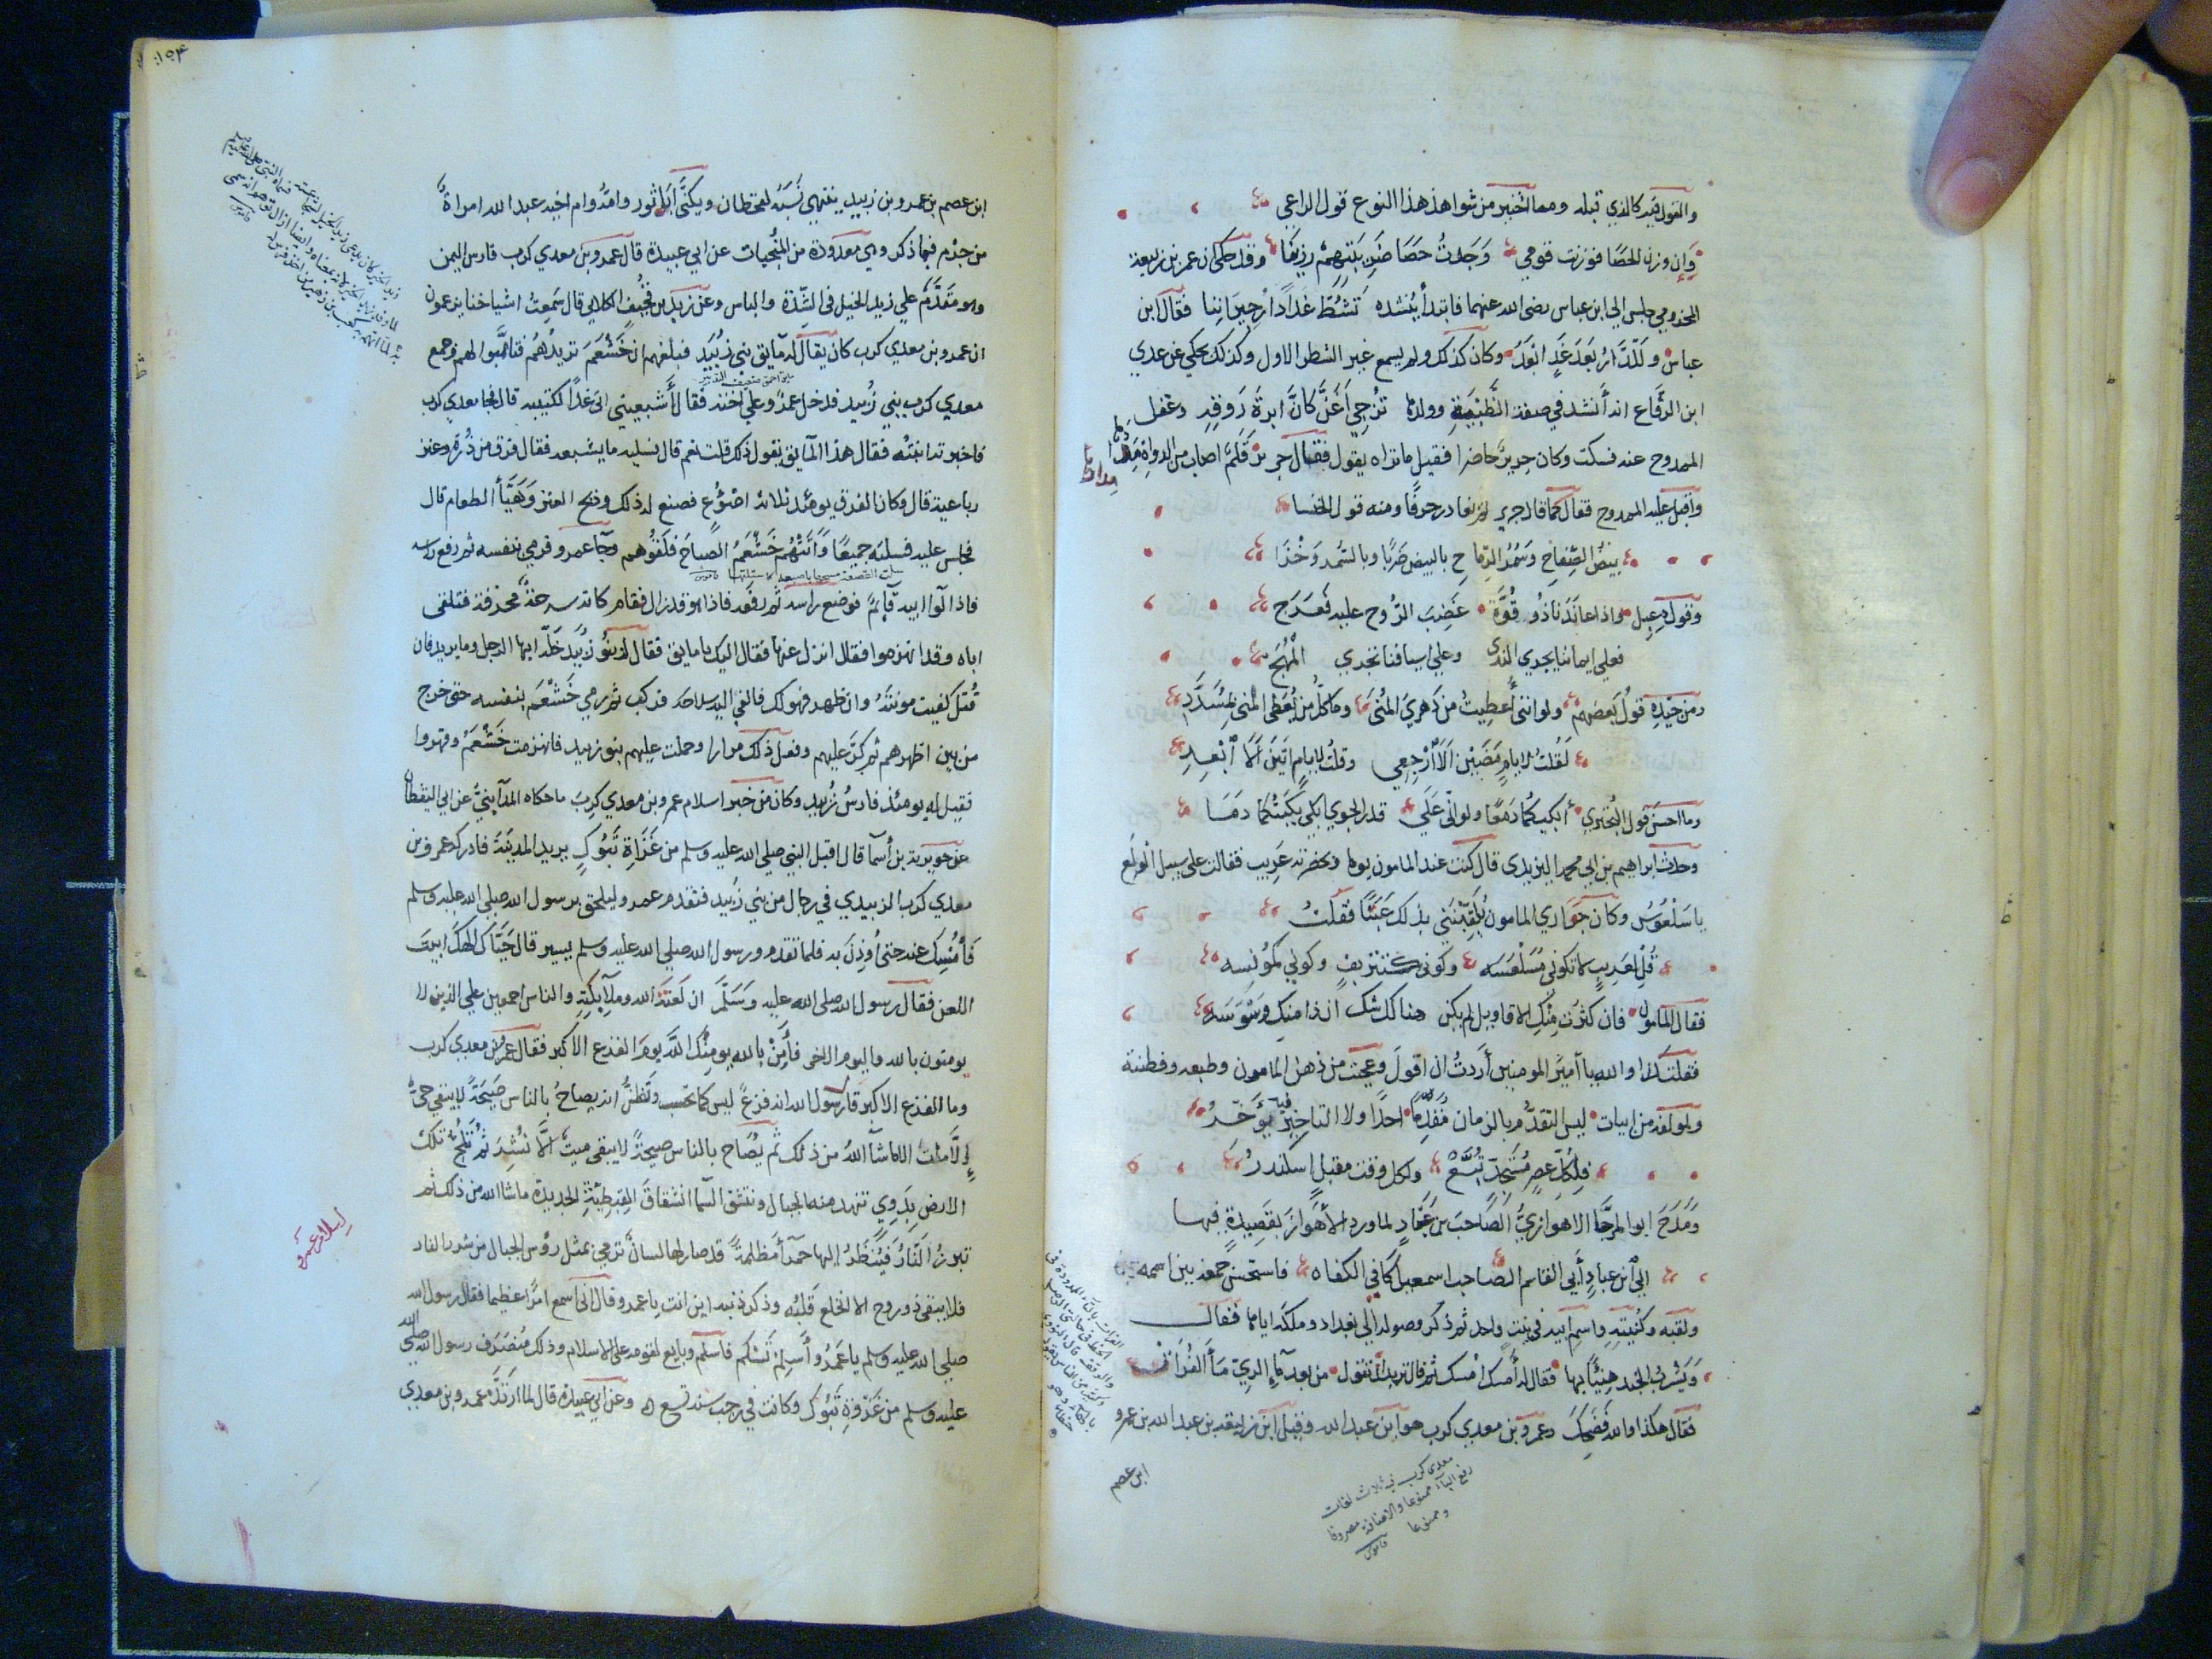 والقول فيه كالذي قبله ومما اختير من شواهد هذا النوع قول الراعي
وإن وزن الحصا فوزنت قومي وجدت حصا ضريبتهم رزينا وقد حكى ان عمر بن ربيعة
المخزومي جلس الى ابن عباس رضى الله عنهما فابتدأ ينشده تشط غدا دار جيراننا فقال ابن
عباس وللدار بعد غد ابعد وكان كذلك ولم يسمع غير الشطر الاول وكذلك يحكي عن عدي
ابن الرقاع انه أنشد في صفة الظبية وولدها تزجي أغن كان ابرة روقه وغفل
الممدوح عنه فسكت وكان جرير حاضرا فقيل ما تراه يقول فقال جرير قلم اصاب من الدواة مدادها
مدادها
واقبل عليه الممدوح فقال كما قال جرير لم يغادر حرفا ومنه قول الخنسا
بيض الصفاح وسمر الرماح بالبيض ضربا وبالسمر وخزا
وقول دعبل واذا عاندنا ذو قوة غضب الروح عليه فعرج
فعلى ايماننا يجدي الندى وعلى اسيافنا تجري المهج
ومن جيده قول بعضهم ولو انني أعطيت من دهري المنى وما كل من يعطى المنى بمسدد
لقلت لايام مضين ألا ارجعي وقلت لايام اتين ألا ابعدي
وما احسن قول البحتري أبكيكما دمعا ولو اني على قدر الجوي ابكي بكيتكما دما
وحدث ابراهيم بن ابي محمد اليزيدي قال كنت عند المامون يوما وبحضرته عريب فقالت على سبيل الولع
يا سلعوس وكان جواري المامون يلقبنني بذلك عبثا فقلت
قل لعريب لا تكوني مسلعسه وكوني كتتريف وكوني كمونسه
فقال المامون فان كثرت منك الاقاويل لم يكن هنالك شك ان ذا منك وسوسه
فقلت كذا والله يا أمير المومنين أردت ان اقول وعجبت من ذهن المامون وطبعه وفطنته
ولمولفه من ابيات ليس التقدم بالزمان مقدما احدا ولا التاخير فيه يؤخر
فلكل عصر مستجد تبع ولكل وقت مقبل اسكندر
ومدح ابو الرجا الاهوازي الصاحب بن عباد لما ورد الاهواز بقصيدة فيها
الى ابن عباد أبي القاسم الصاحب اسمعيل كافي الكفاه فاستحسن جمعه بين اسمه
ولقبه وكنيته واسم ابيه في بيت واحد ثم ذكر وصوله الى بغداد وملكه اياها فقال
ويشرب الجند هنيئا بها فقال له أمسك امسك ثم قال تريد ان تقول من بعد ماء الري ماء الفرات
فقال هكذا والله فضحك وعمرو بن معدي كرب هو ابن عبد الله وقيل ابن ربيعة بن عبد الله بن عمرو
ابن عصم
معدي كرب فيه ثلاث لغات
رفع الباء ممنوعا والاضافة مصروفا
وممنوعا
قاموس
١٥٤
ابن عصم بن عمرو بن زبيد ينتهي نسبه لقحطان ويكنى أبا ثور وامه وام اخيه عبد الله امراة
من جرم فيما ذكر وهي معدودة من المنجبات عن ابي عبيدة قال عمرو بن معدي كرب فارس اليمن
وهو مقدم على زيد الخيل في الشدة والباس وعن زيد بن قحيف الكلابي قال سمعت اشياخنا يزعمون
ان عمرو بن معدي كرب كان يقال له مائق بني زبيد فبلغهم ان خثعم تريدهم فتاهبوا لهم وجمع
معدي كرب بني زبيد فدخل عمرو على اخته فقال أشبعيني اني غدا لكتيبه قال فجا معدي كرب
فاخبرته ابنته فقال هذا المائق يقول ذلك قلت نعم قال فسليه ما يشبعه فقال فرق من ذرة وعنز
رباعية قال وكان الفرق يومئذ ثلاثة اصوع فصنع له ذلك وذبح العنز وهيأ الطعام قال
فجلس عليه فسلته جميعا وأتتهم خثعم الصباح فلقوهم وجآ عمرو فرمى بنفسه ثم رفع راسه
فاذا لوا ابيه قائم فوضع راسه ثم رفعه فاذا هو قد زال فقام كانه سرحة محرقة فتلقى
اباه وقد انهزموا فقال انزل عنها فقال اليك يا مايق فقال له بنو زبيد خله ايها الرجل وما يريد فان
قتل كفيت مونته وان ظهر فهو لك فالقى اليه سلاحه فركب ثم رمي خثعم بنفسه حتى خرج
من بين اظهرهم ثم كر عليهم وفعل ذلك مرارا وحملت عليهم بنو زبيد فانهزمت خثعم وقهروا
فقيل له يومئذ فارس زبيد وكان من خبر اسلام عمرو بن معدي كرب ما حكاه المدآيني عن ابي اليقظان
عن جويرية بن أسمآ قال اقبل النبي صلى الله عليه وسلم من غزاة تبوك يريد المدينة فادركه عمرو بن
معدي كرب الزبيدي في رجال من بني زبيد فتقدم عمرو ليلحق برسول الله صلى الله عليه وسلم
فأمسك عنه حتى أوذن به فلما تقدم ورسول الله صلى الله عليه وسلم يسير قال حياك الهك ابيت
اللعن فقال رسول الله صلى الله عليه وسلم ان لعنة الله وملائكته والناس اجمعين على الذين لا
يومنون بالله واليوم الاخر فأمن بالله يومنك الله يوم الفزع الاكبر فقال عمرو بن معدي كرب
وما الفزع الاكبر قال رسول الله انه فزع ليس كما تحسب وتظن انه يصاح بالناس صيحة لا يبقى حي
إلا مات الا ما شآ الله من ذلك ثم يصاح بالناس صيحة لا يبقى ميت الا نشر ثم تلج تلك
الارض بدوي تنهد منه الجبال وتنشق السما انشقاق القبطية الجديدة ما شا الله من ذلك ثم
تبرز النار فينظر اليها حمرآ مظلمة قد صار لها لسان ترمي بمثل رؤس الجبال من شرر النار
فلا يبقى ذو روح الا انخلع قلبه وذكر ذنبه اين انت يا عمرو قال اني اسمع امرا عظيما فقال رسول الله
صلى الله عليه وسلم يا عمرو أسلم تسلم فاسلم وبايع لقومه على الاسلام وذلك منصرف رسول الله صلى الله
عليه وسلم من غزوة تبوك وكانت في رجب سنة تسع وعن ابي عبيدة قال لما ارتد عمرو بن معدي
اسلام عمرو